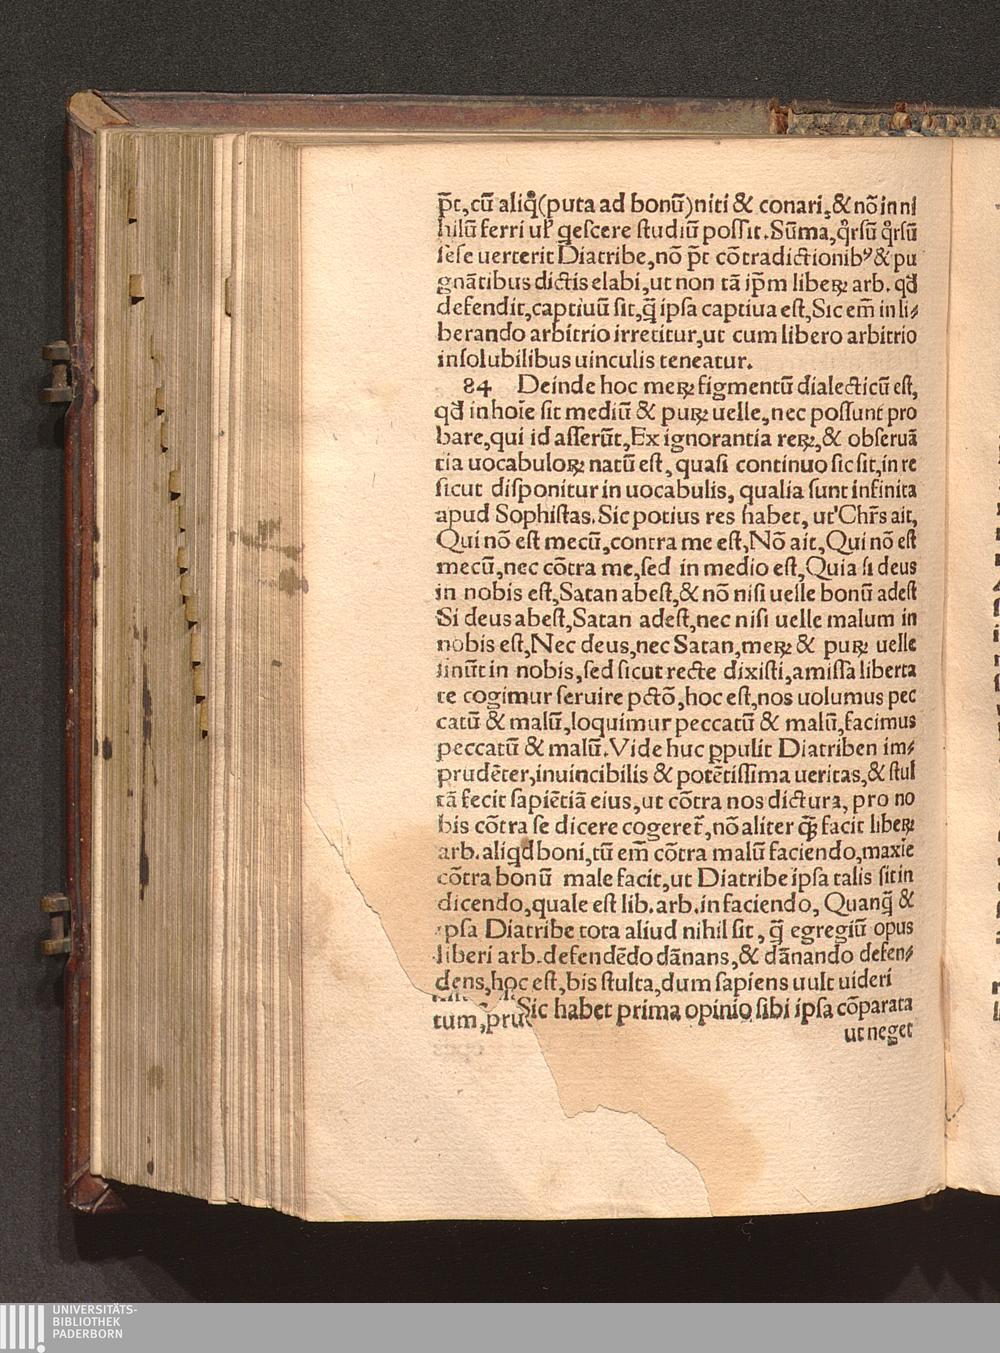 p̃t, cū aliq̊(puta ad bonū)niti & conari, & nō in ni
hilū ferri ul' q̨eſcere ſtudiū poſſit. Sūma, q̊rſū q̊rſū
ſeſe uerterit Diatribe, nō p̃t cōtradictionibꝰ & pu
gnātibus dictis elabi, ut non tā ip̄m liberꝝ arb. qd̄
defendit, captiuū ſit, q̄ ipſa captiua eſt, Sic em̄ in li⸗
berando arbitrio irretitur, ut cum libero arbitrio
inſolubilibus uinculis teneatur.
84 Deinde hoc meꝝ figmentū dialecticū eſt,
qd̄ in hoīe ſit mediū & puꝝ uelle, nec poſſunt pro
bare, qui id aſſerūt, Ex ignorantia reꝝ, & obſeruā
tia uocabuloꝝ natū eſt, quaſi continuo ſic ſit, in re
ſicut diſponitur in uocabulis, qualia ſunt infinita
apud Sophiſtas. Sic potius res habet, ut Chr̄s ait,
Qui nō eſt mecū, contra me eſt, Nō ait, Qui nō eſt
mecū, nec cōtra me, ſed in medio eſt, Quia ſi deus
in nobis eſt, Satan abeſt, & nō niſi uelle bonū adeſt
Si deus abeſt, Satan adeſt, nec niſi uelle malum in
nobis eſt, Nec deus, nec Satan, meꝝ & puꝝ uelle
ſinūt in nobis, ſed ſicut recte dixiſti, amiſſa liberta
te cogimur ſeruire pctō, hoc eſt, nos uolumus pec
catū & malū, loquimur peccatū & malū, facimus
peccatū & malū. Vide huc ꝓpulit Diatriben im⸗
prudēter, inuincibilis & potētiſſima ueritas, & ſtul
tā fecit ſapiētiā eius, ut cōtra nos dictura, pro no
bis cōtra ſe dicere cogeret̄, nō aliter q̄ꝫ facit libeꝝ
arb. aliqd boni, tū em̄ cōtra malū faciendo, maxīe
cōtra bonū male facit, ut Diatribe ipſa talis ſit in
dicendo, quale eſt lib. arb. in faciendo, Quanq̄ &
ipſa Diatribe tota aliud nihil ſit, q̄ egregiū opus
liberi arb. defendēdo dānans, & dānando defen⸗
dens, hoc eſt, bis ſtulta, dum ſapiens uult uideri
Sic habet prima opinio ſibi ipſa cōparata
tum, pru
ut neget
UNIVERSITÄTS-
BIBLIOTHEK
PADERBORN